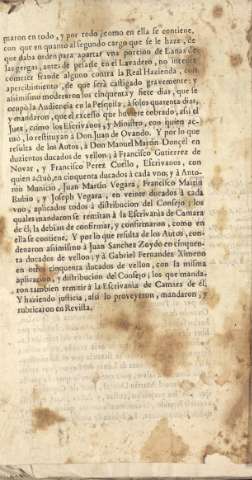 maron en todo, y por todo, como en ella se contiene,
con que en quanto al segundo cargo que se le haze, de
que daba orden para apartar vna porcion de Lanas de
las gergas, antes de pesarse en el Lavadero, no intente
cometer fraude alguno contra la Real Hazienda, con
apercibimiento, de que serà castigado gravemente; y
asimismo moderaron los cinquenta y siete dias, que se
ocupò la Audiencia en la Pesquisa, à solos quarenta dias,
y mandaron, que el excesso que huviere cobrado, assi el
Juez, como los Escrivanos, y Ministro, con quien ac-
tuò, lo restituyan à Don Juan de Ovando. Y por lo que
resulta de los Autos, à Don Manuel Martin Donçel en
duzientos ducados de vellon; à Francisco Gutierrez de
Novar, y Francisco Perez Cuello, Escrivanos, con
quien actuò, en cinquenta ducados à cada vno; y à Anto-
nio Municio, Juan Martin Vegara, Francisco Martin
Rubio, y Joseph Vegara, en veinte ducados à cada
vno, aplicados todos à distribucion del Consejo; los
quales mandaron se remitan à la Escrivania de Camara
de èl, la debian de confirmar, y confirmaron, como en
ella se contiene. Y por lo que resulta de los Autos, con-
denaron asimismo à Juan Sanchez Zoydo en cinquen-
ta ducados de vellon; y à Gabriel Fernandez Ximeno
en otros cinquenta ducados de vellon, con la misma
aplicacion, y distribucion del Consejo; los que manda-
ron tambien remitir à la Escrivania de Camara de èl.
Y haziendo justicia, assi lo proveyeron, mandaron, y
rubricaron en Revista.